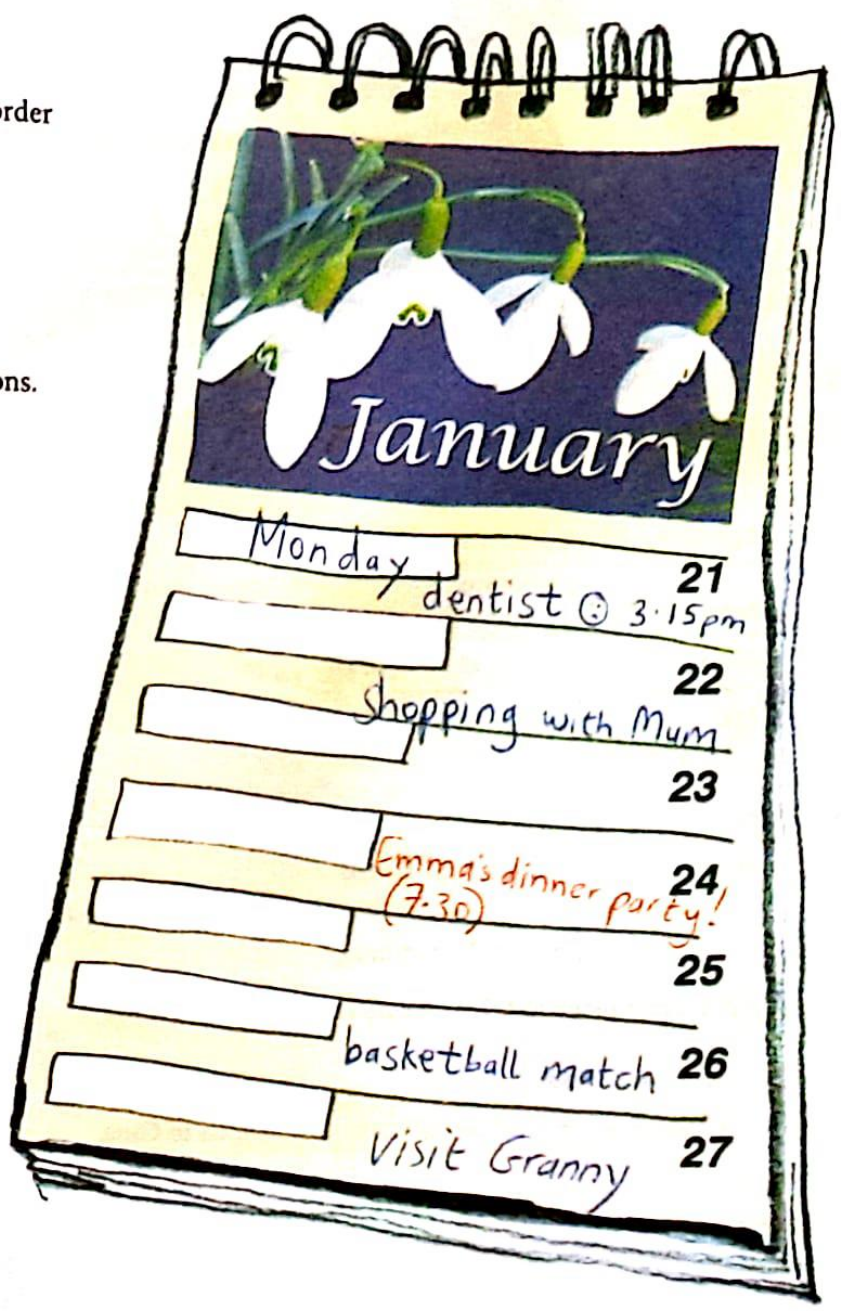 order
ons.
January
Monday
21
dentist @ 3.15pm
22
shopping with Mum
23
24
Emma's dinner party!
(7.30)
25
basketball match 26
visit Granny 27